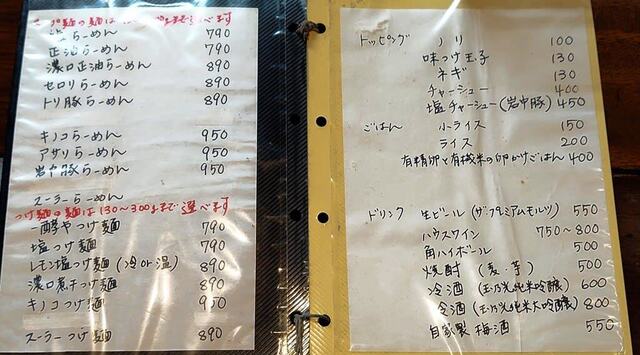 らーめん 790
正油らーめん 790
濃口正油らーめん 890
セロリらーめん 890
トリ豚らーめん 890
キノコらーめん 950
アサリらーめん 950
岩中豚らーめん 950
スーラーらーめん
つけ麺の麺は130〜300gまで選べます
つけ麺 790
塩つけ麺 790
レモン塩つけ麺(冷or温) 890
濃口煮干つけ麺 890
キノコつけ麺 950
スーラーつけ麺 890
トッピング ノリ 100
味つけ玉子 130
ネギ 130
チャーシュー 400
塩チャーシュー(岩中豚) 450
ごはん 小ライス 150
ライス 200
有精卵と有機米の卵かけごはん 400
ドリンク 生ビール(ザ・プレミアムモルツ) 550
ハウスワイン 750〜800
角ハイボール 500
焼酎(麦、芋) 500
冷酒(玉乃光純米吟醸) 600
冷酒(玉乃光純米大吟醸) 800
自家製梅酒 550